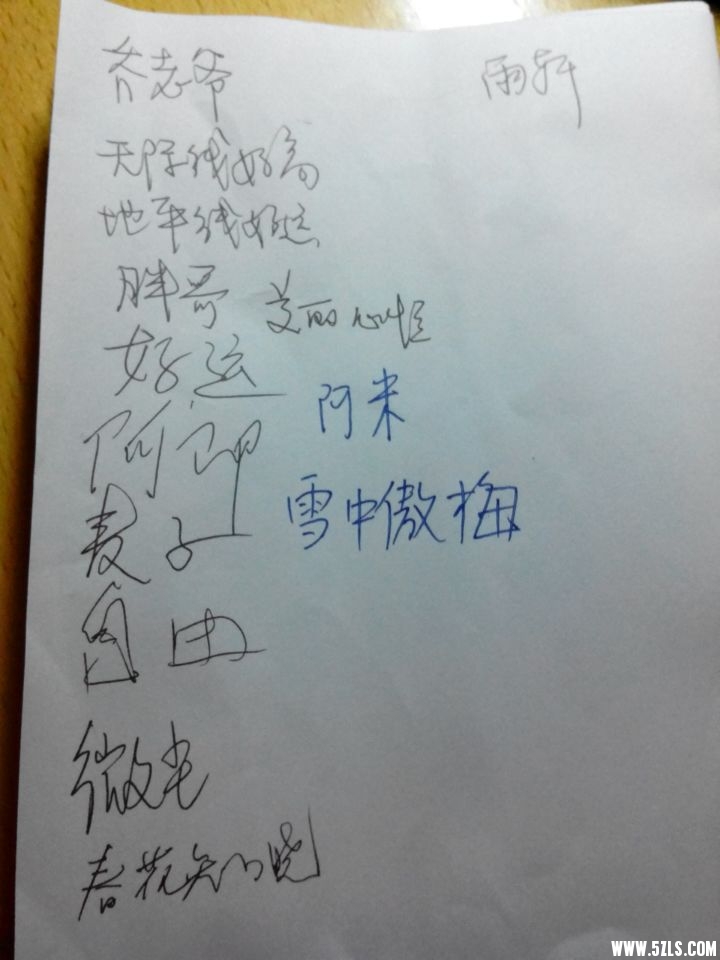 乔老爷
雨轩
天际线好高
地平线好远
胖哥
美丽心情
好运
阿郎
阿米
麦子
雪中傲梅
自由
微光
春花知晓
WWW.5ZLS.COM